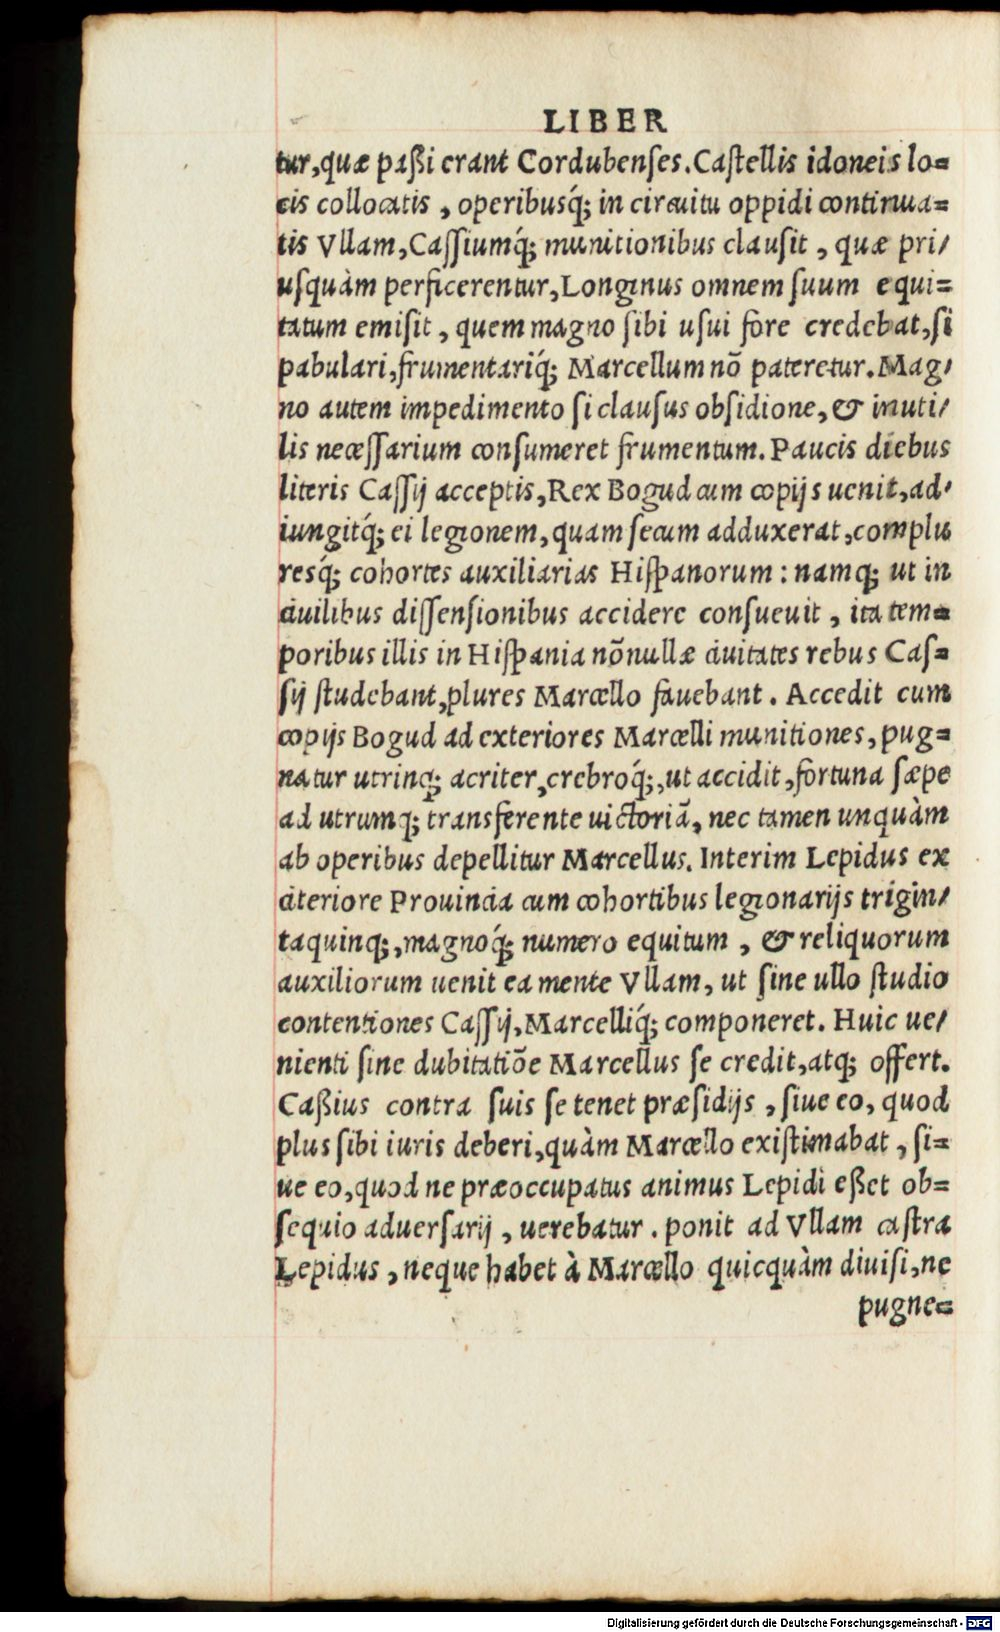 LIBER
tur, quæ paßi erant Cordubenses. Castellis idoneis lo=
cis collocatis, operibusq́; in circuitu oppidi continua=
tis Vllam, Cassiumq́; munitionibus clausit, quæ pri/
usquàm perficerentur, Longinus omnem suum equi=
tatum emisit, quem magno sibi usui fore credebat, si
pabulari, frumentariq́; Marcellum nõ pateretur. Mag/
no autem impedimento si clausus obsidione, & inuti/
lis necessarium consumeret frumentum. Paucis diebus
literis Cassij acceptis, Rex Bogud cum copijs uenit, ad/
iungitq́; ei legionem, quam secum adduxerat, complu
resq́; cohortes auxiliarias Hispanorum: namq; ut in
ciuilibus dissensionibus accidere consueuit, ita tem=
poribus illis in Hispania nõnullæ ciuitates rebus Cas=
sij studebant, plures Marcello fauebant. Accedit cum
copijs Bogud ad exteriores Marcelli munitiones, pug=
natur utrinq; acriter, crebroq́;, ut accidit, fortuna sæpe
ad utrumq; transferente uictoriã, nec tamen unquàm
ab operibus depellitur Marcellus. Interim Lepidus ex
citeriore Prouincia cum cohortibus legionarijs trigin/
taquinq;, magnoq́; numero equitum, & reliquorum
auxiliorum uenit ea mente Vllam, ut sine ullo studio
contentiones Cassij, Marcelliq́; componeret. Huic ue/
nienti sine dubitatiõe Marcellus se credit, atq; offert.
Caßius contra suis se tenet præsidijs, siue eo, quod
plus sibi iuris deberi, quàm Marcello existimabat, si=
ue eo, quod ne præoccupatus animus Lepidi eßet ob=
sequio aduersarij, uerebatur. ponit ad Vllam castra
Lepidus, neque habet à Marcello quicquàm diuisi, ne
pugne=
Digitalisierung gefördert durch die Deutsche Forschungsgemeinschaft - DFG